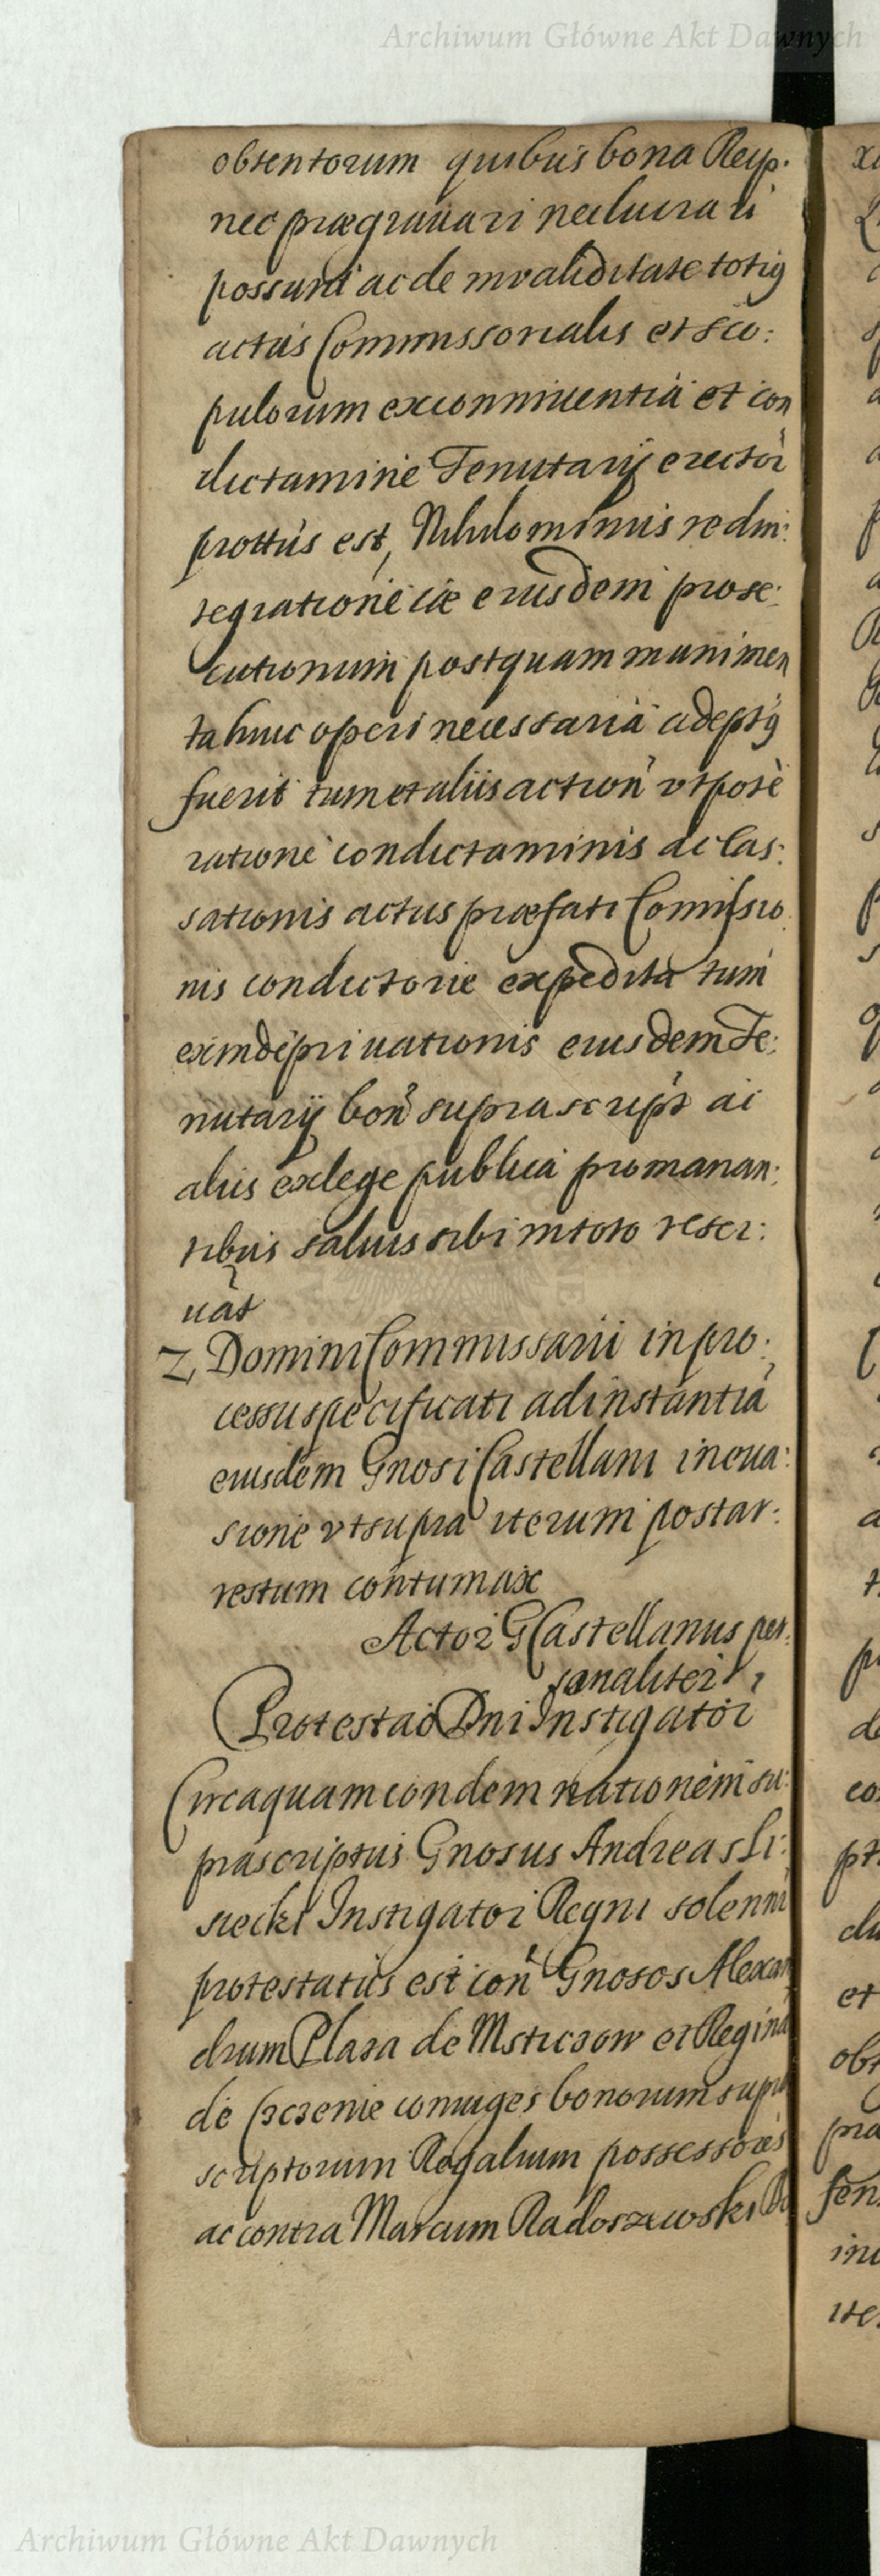 Archiwum Główne Akt Dawnych
obtentorum quibus bona Reip.
nec prægrauari nec lucrari
possunt ac de inualiditate totiq
actus Commissorialis et sco:
pulorum ex conniuentia et con
dictamine Tenutarij erector
prottus est, Nihilominus redin:
tegratione iæ eiusdem prose:
cutionum postquam munimen
ta huic operi necessaria adeptq
fuerit tum et aliis action vtpote
ratione condictaminis ac cas:
sationis actus præfati Comissio
nis condictorie expedita tum
exinde priuationis eiusdem Te:
nutarij bon suprascript ac
aliis ex lege publica promanan:
tibus saluis sibi in toto reser:
uat
2 Domini Commissarii in pro:
cessu specificati ad instantia
eiusdem Gnosi Castellani in eua:
sione vt supra iterum post ar:
restum contumax
Actor G Castellanus per:
sonaliter
Protestao Dni Instigator
Circa quam condemnationem su:
prascriptus Gnosus Andreas Li:
siecki Instigator Regni solenni
protestatus est con Gnosos Alexan
drum Plaza de Msticzow et Regina
de coniuges bonorum supra
scriptorum Regalium possessores
ac contra Marcum Radoszewski
Archiwum Główne Akt Dawnych